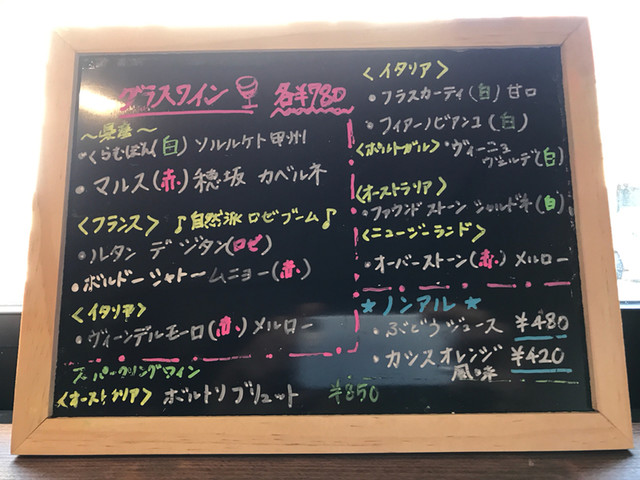 グラスワイン 各¥780
～県産～
・くらむぼん(白) ソルルケト 甲州
・マルス(赤) 穂坂 カベルネ
<フランス> ♪自然派 ロゼブーム♪
・ルタン デ ジタン(ロゼ)
・ボルドー シャトームニョー(赤)
<イタリア>
・ヴィーンデルモーロ(赤) メルロー
スパークリングワイン
<オーストラリア> ボルトリ ブリュット ¥850
<イタリア>
・フラスカーティ(白) 甘口
・フィアーノビアンコ(白)
<ポルトガル>・ヴィーニュ
ヴェルデ(白)
<オーストラリア>
・ファウンドストーン シャルドネ(白)
<ニュージーランド>
・オーバーストーン(赤) メルロー
★ノンアル★
・ぶどうジュース ¥480
・カシスオレンジ ¥420
風味